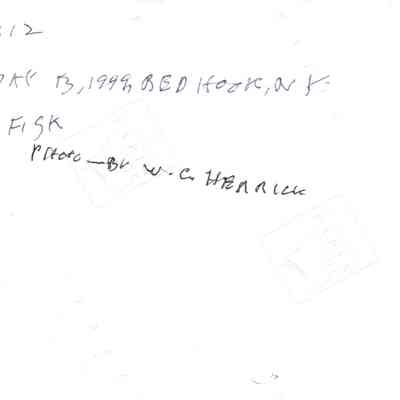 12
13, 1999, RED HOOK, N Y.
FISK
PHOTO—BY W. C. HERRICK